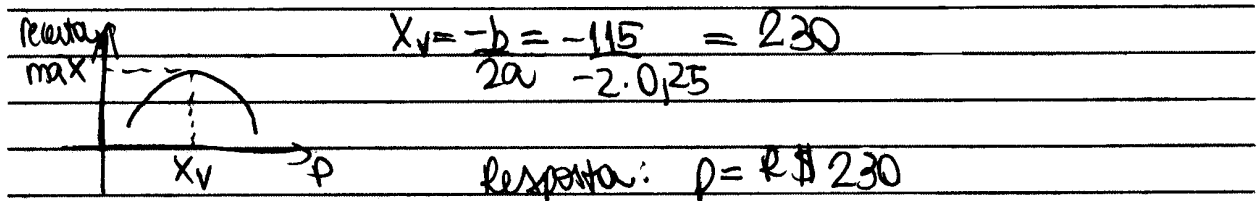 receita
max
Xv = -b/2a = -115/-2·0,25 = 230
Xv
p
Resposta: p = R$ 230